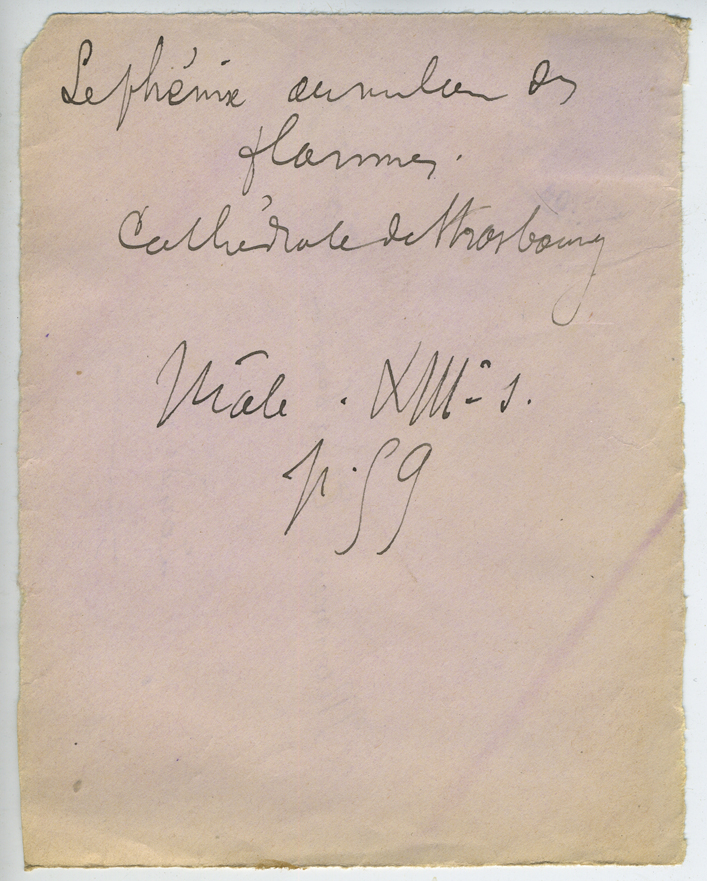 Le phénix au milieu des
flammes.
Cathédrale de Strasbourg
Mâle. XIIIe s.
p. 59